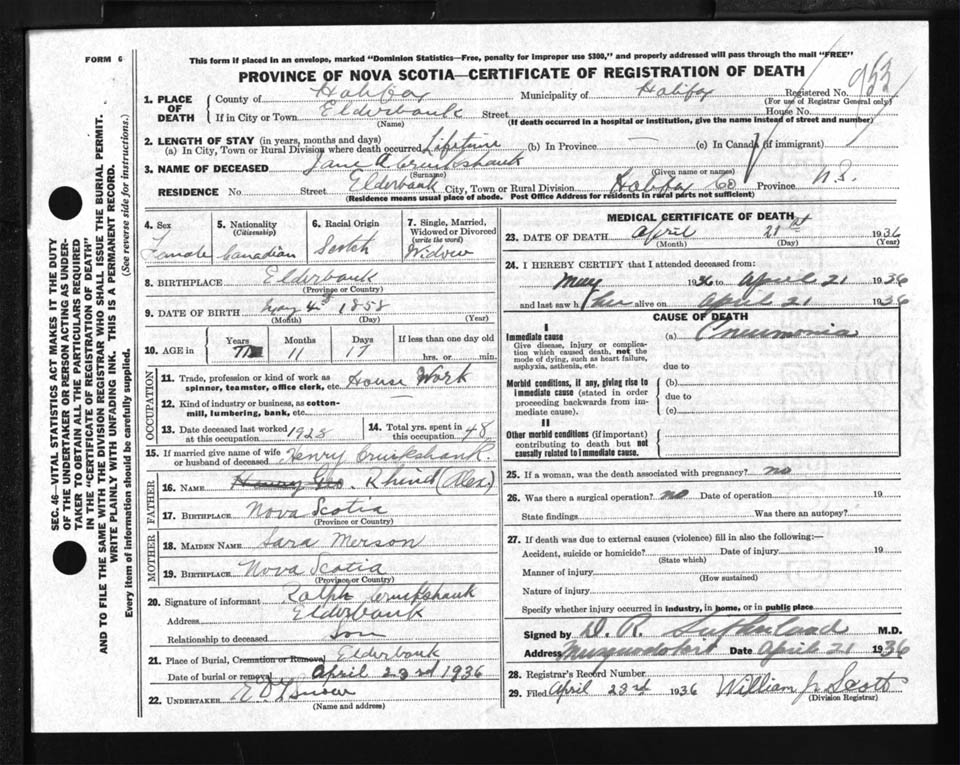 FORM 6
This form if placed in an envelope, marked "Dominion Statistics—Free, penalty for improper use $300," and properly addressed will pass through the mail "FREE"
PROVINCE OF NOVA SCOTIA—CERTIFICATE OF REGISTRATION OF DEATH
953
1. PLACE OF DEATH
County of Halifax Municipality of Halifax Registered No.
(For use of Registrar General only)
If in City or Town Elderbank Street House No.
(Name) (If death occurred in a hospital or institution, give the name instead of street and number)
2. LENGTH OF STAY (in years, months and days)
(a) In City, Town or Rural Division where death occurred Lifetime (b) In Province — (c) In Canada (if immigrant)
3. NAME OF DECEASED Jane A Cruikshank
(Surname) (Given name or names)
RESIDENCE No. Street Elderbank City, Town or Rural Division Halifax Co Province N.S.
(Residence means usual place of abode. Post Office Address for residents in rural parts not sufficient)
4. Sex
Female
5. Nationality
(Citizenship)
Canadian
6. Racial Origin
Scotch
7. Single, Married, Widowed or Divorced
(write the word)
Widow
8. BIRTHPLACE Elderbank
(Province or Country)
9. DATE OF BIRTH May 4th 1858
(Month) (Day) (Year)
10. AGE in
Years Months Days If less than one day old
77 11 17 hrs. or min.
OCCUPATION
11. Trade, profession or kind of work as spinner, teamster, office clerk, etc. House Work
12. Kind of industry or business, as cotton-mill, lumbering, bank, etc.
13. Date deceased last worked at this occupation 1928
14. Total yrs. spent in this occupation 48
15. If married give name of wife or husband of deceased Henry Cruikshank.
FATHER
16. NAME Henry Geo. Rhind (Alex.)
17. BIRTHPLACE Nova Scotia
(Province or Country)
MOTHER
18. MAIDEN NAME Sara Merson
19. BIRTHPLACE Nova Scotia
(Province or Country)
20. Signature of informant Ralph Cruikshank
Address Elderbank
Relationship to deceased Son
21. Place of Burial, Cremation or Removal Elderbank
Date of burial or removal April 23rd 1936
22. UNDERTAKER
(Name and address)
MEDICAL CERTIFICATE OF DEATH
23. DATE OF DEATH April 21st 1936
(Month) (Day) (Year)
24. I HEREBY CERTIFY that I attended deceased from:
1936 to April 21 1936
and last saw her alive on April 21 1936
CAUSE OF DEATH
I
Immediate cause
Give disease, injury or complication which caused death, not the mode of dying, such as heart failure, asphyxia, asthenia, etc.
(a) Pneumonia
due to
Morbid conditions, if any, giving rise to immediate cause (stated in order proceeding backwards from immediate cause).
(b)
due to
(c)
II
Other morbid conditions (if important) contributing to death but not causally related to immediate cause.
25. If a woman, was the death associated with pregnancy? no
26. Was there a surgical operation? no Date of operation 19
State findings Was there an autopsy?
27. If death was due to external causes (violence) fill in also the following:—
Accident, suicide or homicide? Date of injury 19
(State which)
Manner of injury
(How sustained)
Nature of injury
Specify whether injury occurred in industry, in home, or in public place
Signed by D. R. Sutherland M.D.
Address Musquodoboit Date April 21 1936
28. Registrar's Record Number
29. Filed April 23rd 1936 William J. Scott
(Division Registrar)
SEC. 46—VITAL STATISTICS ACT MAKES IT THE DUTY
OF THE UNDERTAKER OR PERSON ACTING AS UNDER-
TAKER TO OBTAIN ALL THE PARTICULARS REQUIRED
IN THE "CERTIFICATE OF REGISTRATION OF DEATH"
AND TO FILE THE SAME WITH THE DIVISION REGISTRAR WHO SHALL ISSUE THE BURIAL PERMIT.
WRITE PLAINLY WITH UNFADING INK. THIS IS A PERMANENT RECORD.
Every item of information should be carefully supplied. (See reverse side for instructions.)